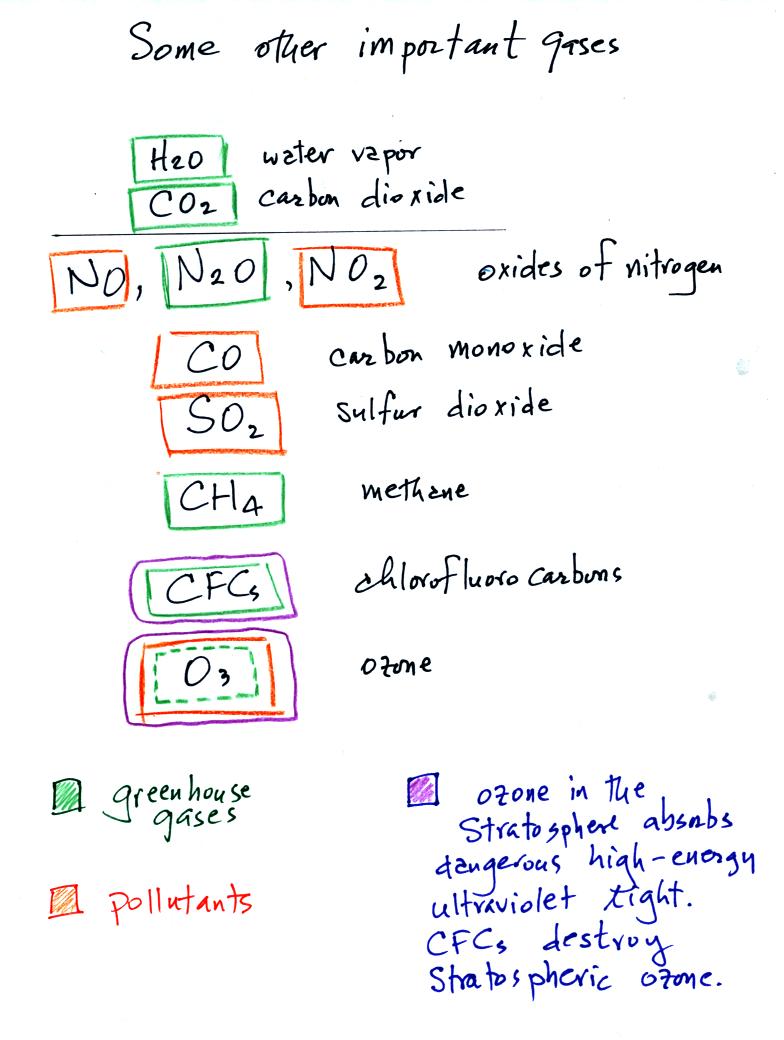 Some other important gases
H2O water vapor
CO2 carbon dioxide
NO, N2O, NO2 oxides of nitrogen
CO carbon monoxide
SO2 sulfur dioxide
CH4 methane
CFCs chlorofluorocarbons
O3 ozone
greenhouse
gases
pollutants
ozone in the
Stratosphere absorbs
dangerous high-energy
ultraviolet light.
CFCs destroy
Stratospheric ozone.